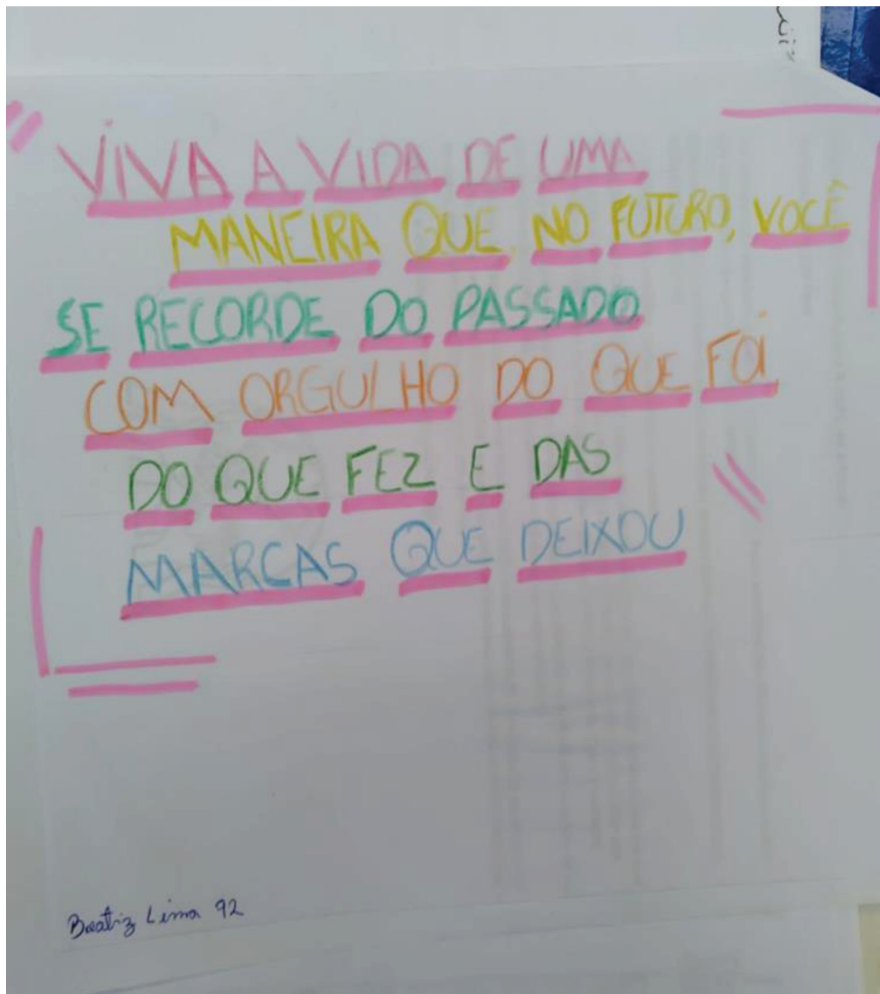 VIVA A VIDA DE UMA
MANEIRA QUE, NO FUTURO, VOCÊ
SE RECORDE DO PASSADO
COM ORGULHO DO QUE FOI
DO QUE FEZ E DAS
MARCAS QUE DEIXOU
Beatriz Lima 92